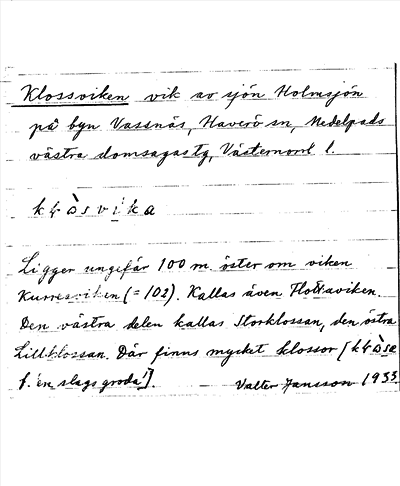 Klossviken vik av sjön Holmsjön
på byn Vassnäs, Haverö sn, Medelpads
västra domsagas tg, Västernorrl. l.
kɬòsvika
Ligger ungefär 100 m. öster om viken
Kurresviken (= 102). Kallas även Flottaviken.
Den västra delen kallas Storklossan, den östra
Lillklossan. Där finns mycket klossor [kɬòsa
f. 'en slags groda'].
Valter Jansson 1933.